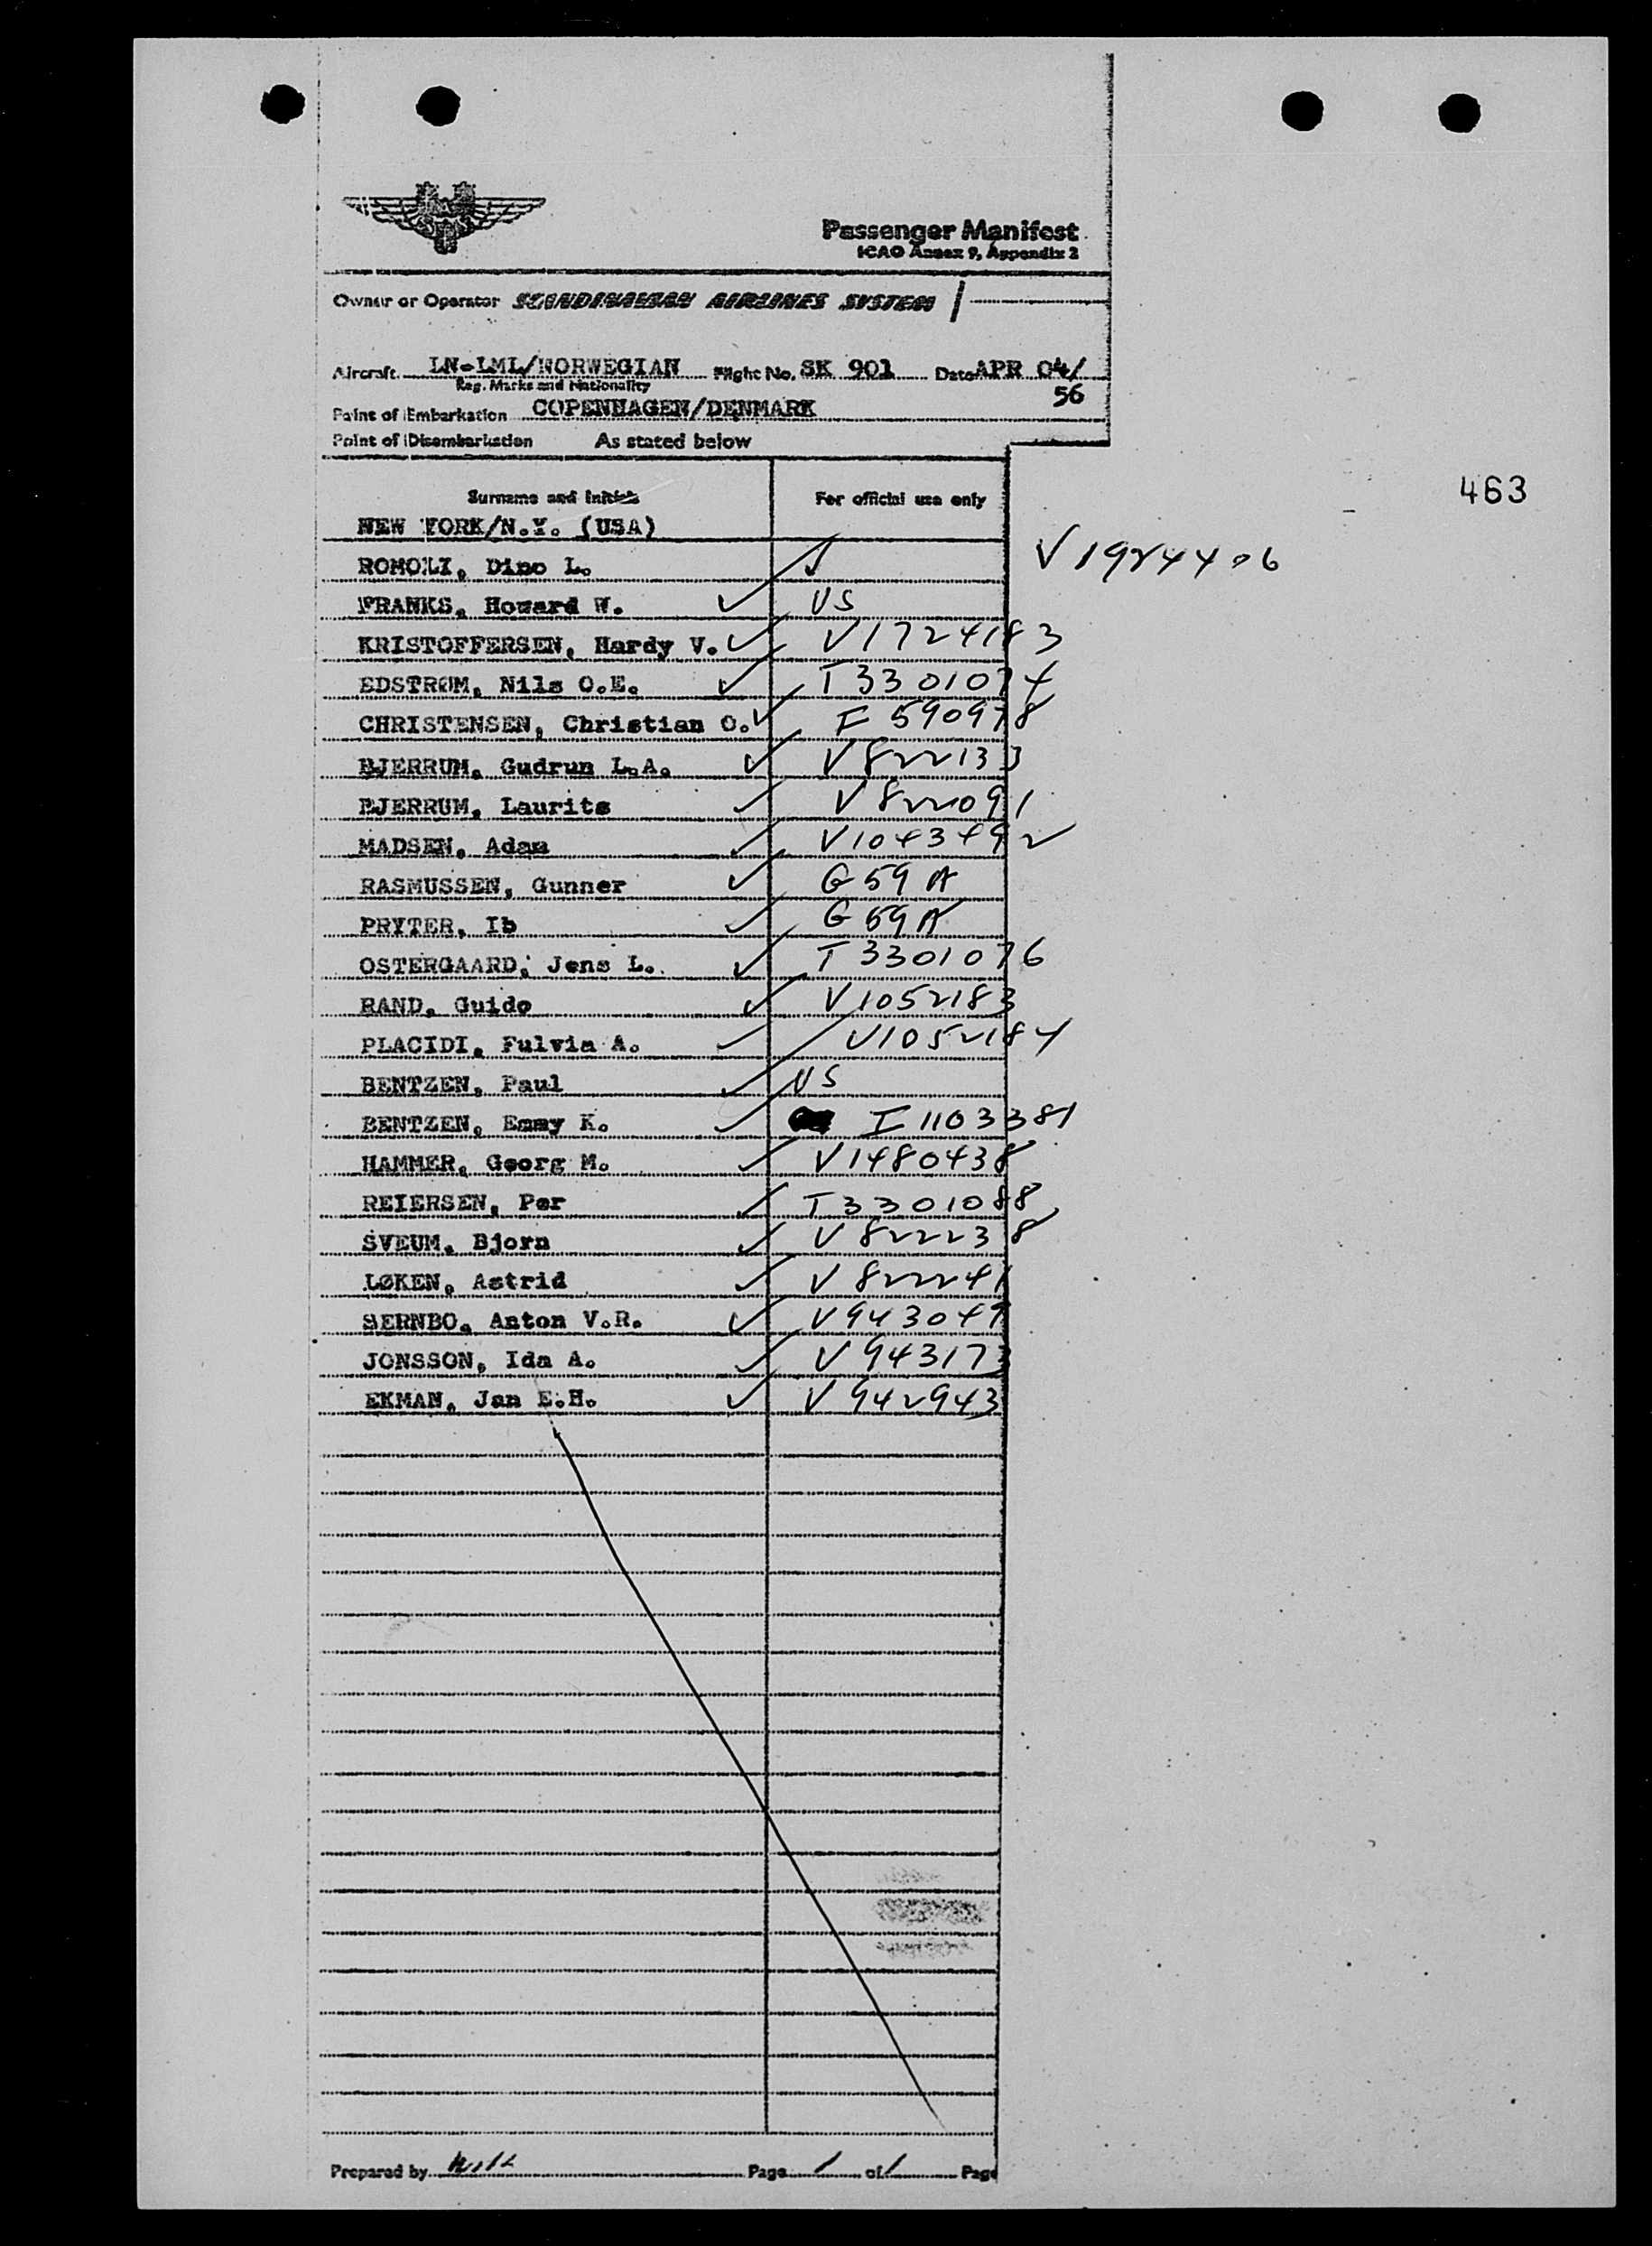 Passenger Manifest
ICAO Annex 9, Appendix 2
Owner or Operator SCANDINAVIAN AIRLINES SYSTEM
Aircraft LN-LML/NORWEGIAN Flight No. SK 901 Date APR 04/
Reg. Marks and Nationality
56
Point of Embarkation COPENHAGEN/DENMARK
Point of Disembarkation As stated below
463
Surname and Initials For official use only
NEW YORK/N.Y. (USA)
ROMOLI, Dino L. ✓ V1984406
FRANKS, Howard W. ✓ US
KRISTOFFERSEN, Hardy V. ✓ V1724183
EDSTRØM, Nils O.E. ✓ T3301074
CHRISTENSEN, Christian O. ✓ I 590978
BJERRUM, Gudrun L.A. ✓ V822133
BJERRUM, Laurits ✓ V822091
MADSEN, Adam ✓ V1043492
RASMUSSEN, Gunner ✓ G 59 A
PRYTER, Ib ✓ G 59 A
OSTERGAARD, Jens L. ✓ T 3301076
RAND, Guido ✓ V1052183
PLACIDI, Fulvia A. ✓ V1052184
BENTZEN, Paul ✓ US
BENTZEN, Emmy K. ✓ I 1103381
HAMMER, Georg M. ✓ V1480438
REIERSEN, Per ✓ T3301088
SVEUM, Bjorn ✓ V 822238
LØKEN, Astrid ✓ V 822241
SERNBO, Anton V.R. ✓ V943049
JONSSON, Ida A. ✓ V 943173
EKMAN, Jan E.H. ✓ V 942943
Prepared by Page 1 of 1 Page